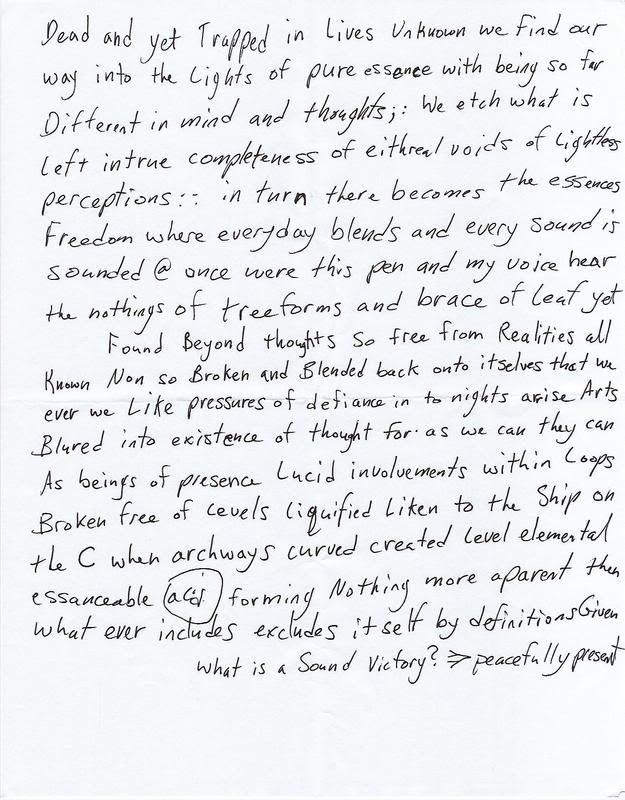 Dead and yet Trapped in Lives Unknown we find our
way into the Lights of pure essence with being so far
Different in mind and thoughts;: We etch what is
Left intrue completeness of eithreal voids of Lightless
perceptions:: in turn there becomes the essences
Freedom where everyday blends and every sound is
sounded @ once were this pen and my voice hear
the nothings of treeforms and brace of Leaf yet
Found Beyond thoughts So free from Realities all
Known Non so Broken and Blended back onto itselves that we
ever we Like pressures of defiance in to nights arise Arts
Blured into existence of thought for as we can they can
As beings of presence Lucid involvements within Loops
Broken free of Levels Liquified Liken to the Ship on
the C when archways curved created Level elemental
essanceable forming Nothing more aparent then
what ever includes excludes itself by definitions Given
what is a Sound Victory? ⇒ peacefully present